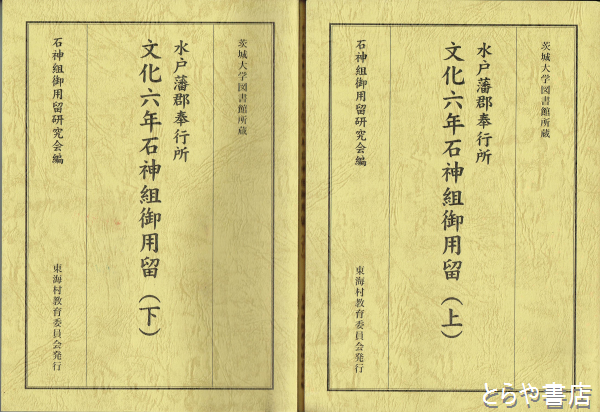 茨城大学図書館所蔵
水戸藩郡奉行所
文化六年石神組御用留(上)
石神組御用留研究会編
東海村教育委員会発行
茨城大学図書館所蔵
水戸藩郡奉行所
文化六年石神組御用留(下)
石神組御用留研究会編
東海村教育委員会発行
とらや書店